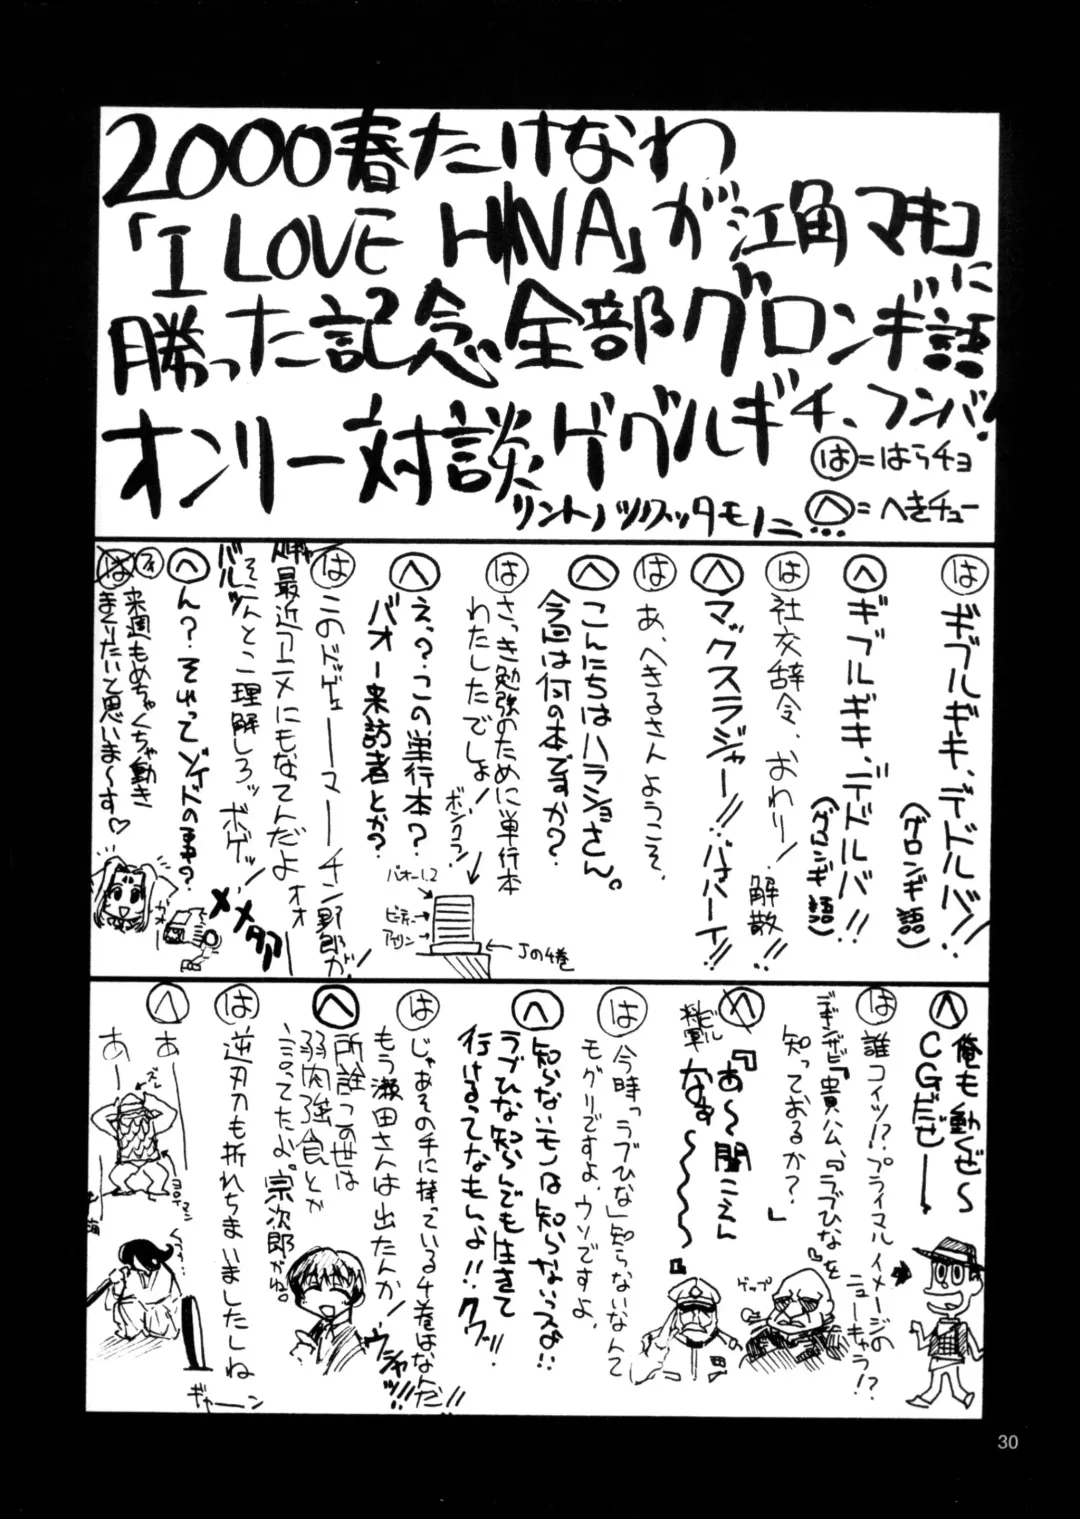 2000春たけなわ
「I LOVE HINA」が江角マキコに
勝った記念全部グロンギ語
オンリー対談ゲグルギチ、フンバ!
は=はらチョ
へ=へきチュー
リントノツクッタモノニ…
は ギブルギキ、デドルバ!
(グロンギ語)
へ ギブルギキ、デドルバ!!
(グロンギ語)
は 社交辞令、おわり!
解散!!
へ マックスラジャー!!バはハーイ!!
は あ、へきるさんようこそ、
へ こんにちはハラショさん。
今回は何の本ですか?
は さっき勉強のために単行本
わたしたでしょ!
ボンクラ!
バオー1、2
ビーティー
アイリン
←Jの4巻
へ え、?この単行本?
バオー来訪者とか?
は このドゲェーーマーーチン野郎が!
最近アニメにもなってんだよ
オオ
そこんとこ理解しろッボゲッ!
バルッ
へ ん?それってゾイドの事?
メメタァ
は 来週もめちゃくちゃ動き
まくりたいと思いま〜す♡
へ 俺も動ぜ〜
CGだぜ——
は 誰コイツ!?プライマルイメージの
ニューキャラ!?
デギンザビ『貴公、「ラブひな」を
知っておるか?』
ゲップ
へ 『あ〜聞こえん
なぁ〜〜〜〜』
は 今時「ラブひな」知らないなんて
モグリですよ、ウソですよ、
へ 知らないモノは知らないっスよ!!
ラブひな知らんでも生きて
行けるってなもんよ!!クワッ!!
は じゃあその手に持っている4巻はなんだ!!
もう瀬田さんは出たんか!
ウシャッ!!
へ 所詮この世は
弱肉強食とか
言ってたよ。宗次郎がね。
は 逆刃刀も折れちまいましたしね
ギャーーン
へ あ——
あ——
30